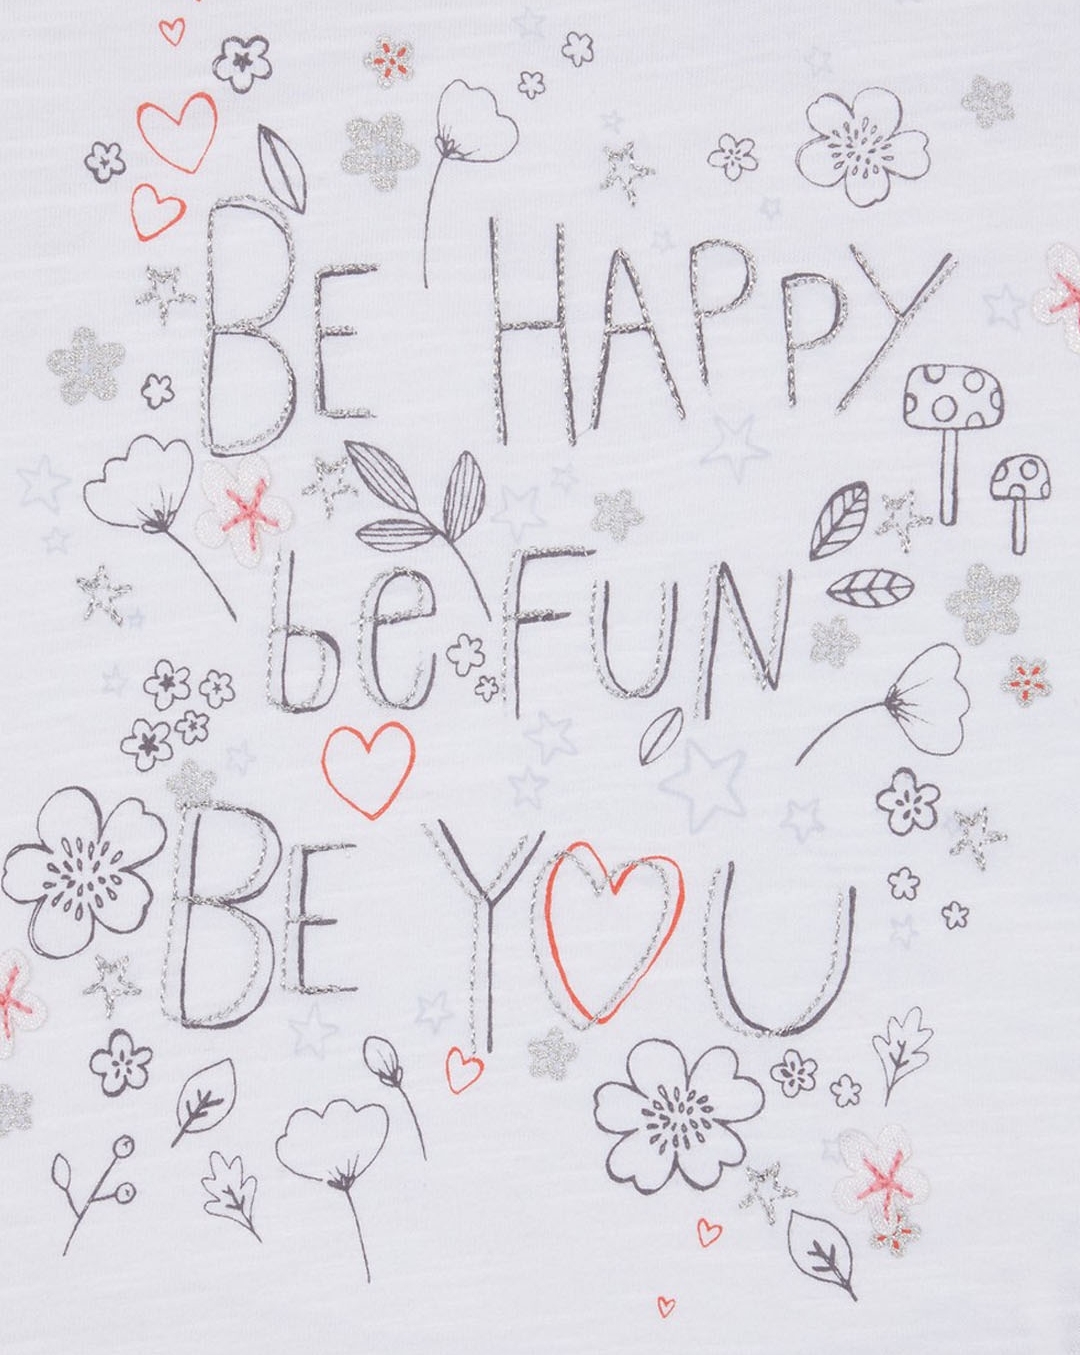 BE HAPPY
be FUN
BE YOU